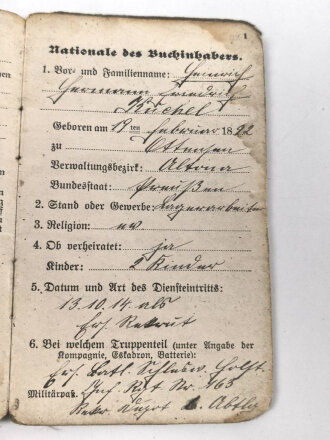 1
Nationale des Buchinhabers.
1. Vor- und Familienname: Heinrich
Hermann Friedrich
Büchel
Geboren am 19ten Februar 1882
zu Ottensen
Verwaltungsbezirk: Altona
Bundesstaat: Preußen
2. Stand oder Gewerbe: Lagerarbeiter
3. Religion: ev.
4. Ob verheiratet: ja
Kinder: 2 Kinder
5. Datum und Art des Diensteintritts:
13.10.14 als
Ers. Rekrut
6. Bei welchem Truppenteil (unter Angabe der
Kompagnie, Eskadron, Batterie):
Ers. Batl. Schlesw. Holst.
Inf. Rgt Nr. 163
Militärpaß.
Rekr. Depot Abtlg